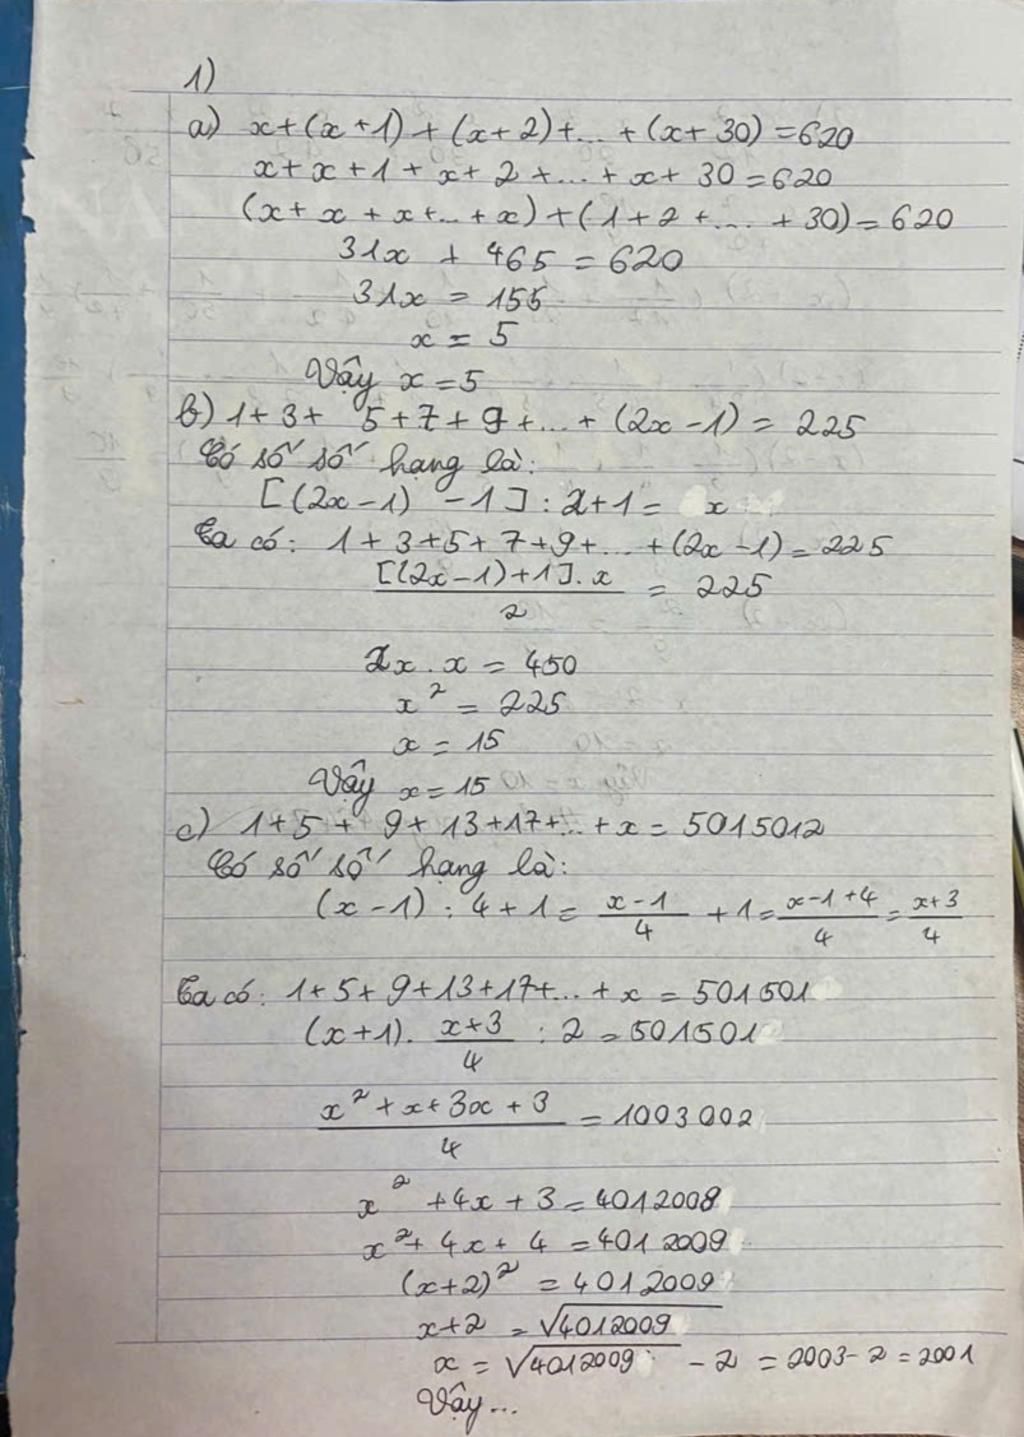 1)
a) x+(x+1)+(x+2)+...+(x+30)=620
x+x+1+x+2+...+x+30=620
(x+x+x+...+x)+(1+2+...+30)=620
31x + 465 = 620
31x = 155
x = 5
Vậy x=5
b) 1+3+ 5+7+9+...+(2x-1)= 225
Có số số hạng là:
[(2x-1) -1]:2+1= x
Ta có: 1+3+5+7+9+...+(2x-1)=225
[(2x-1)+1].x / 2 = 225
2x.x = 450
x² = 225
x = 15
Vậy x=15
c) 1+5+ 9+13+17+...+x= 5015012
Có số số hạng là:
(x-1):4+1= x-1 / 4 +1= x-1+4 / 4 = x+3 / 4
Ta có: 1+5+9+13+17+...+x = 501501
(x+1). x+3 / 4 : 2 = 501501
x²+x+3x+3 / 4 = 1003002
x²+4x+3=4012008
x²+4x+4=4012009
(x+2)² = 4012009
x+2 = √4012009
x = √4012009 - 2 = 2003-2=2001
Vậy...